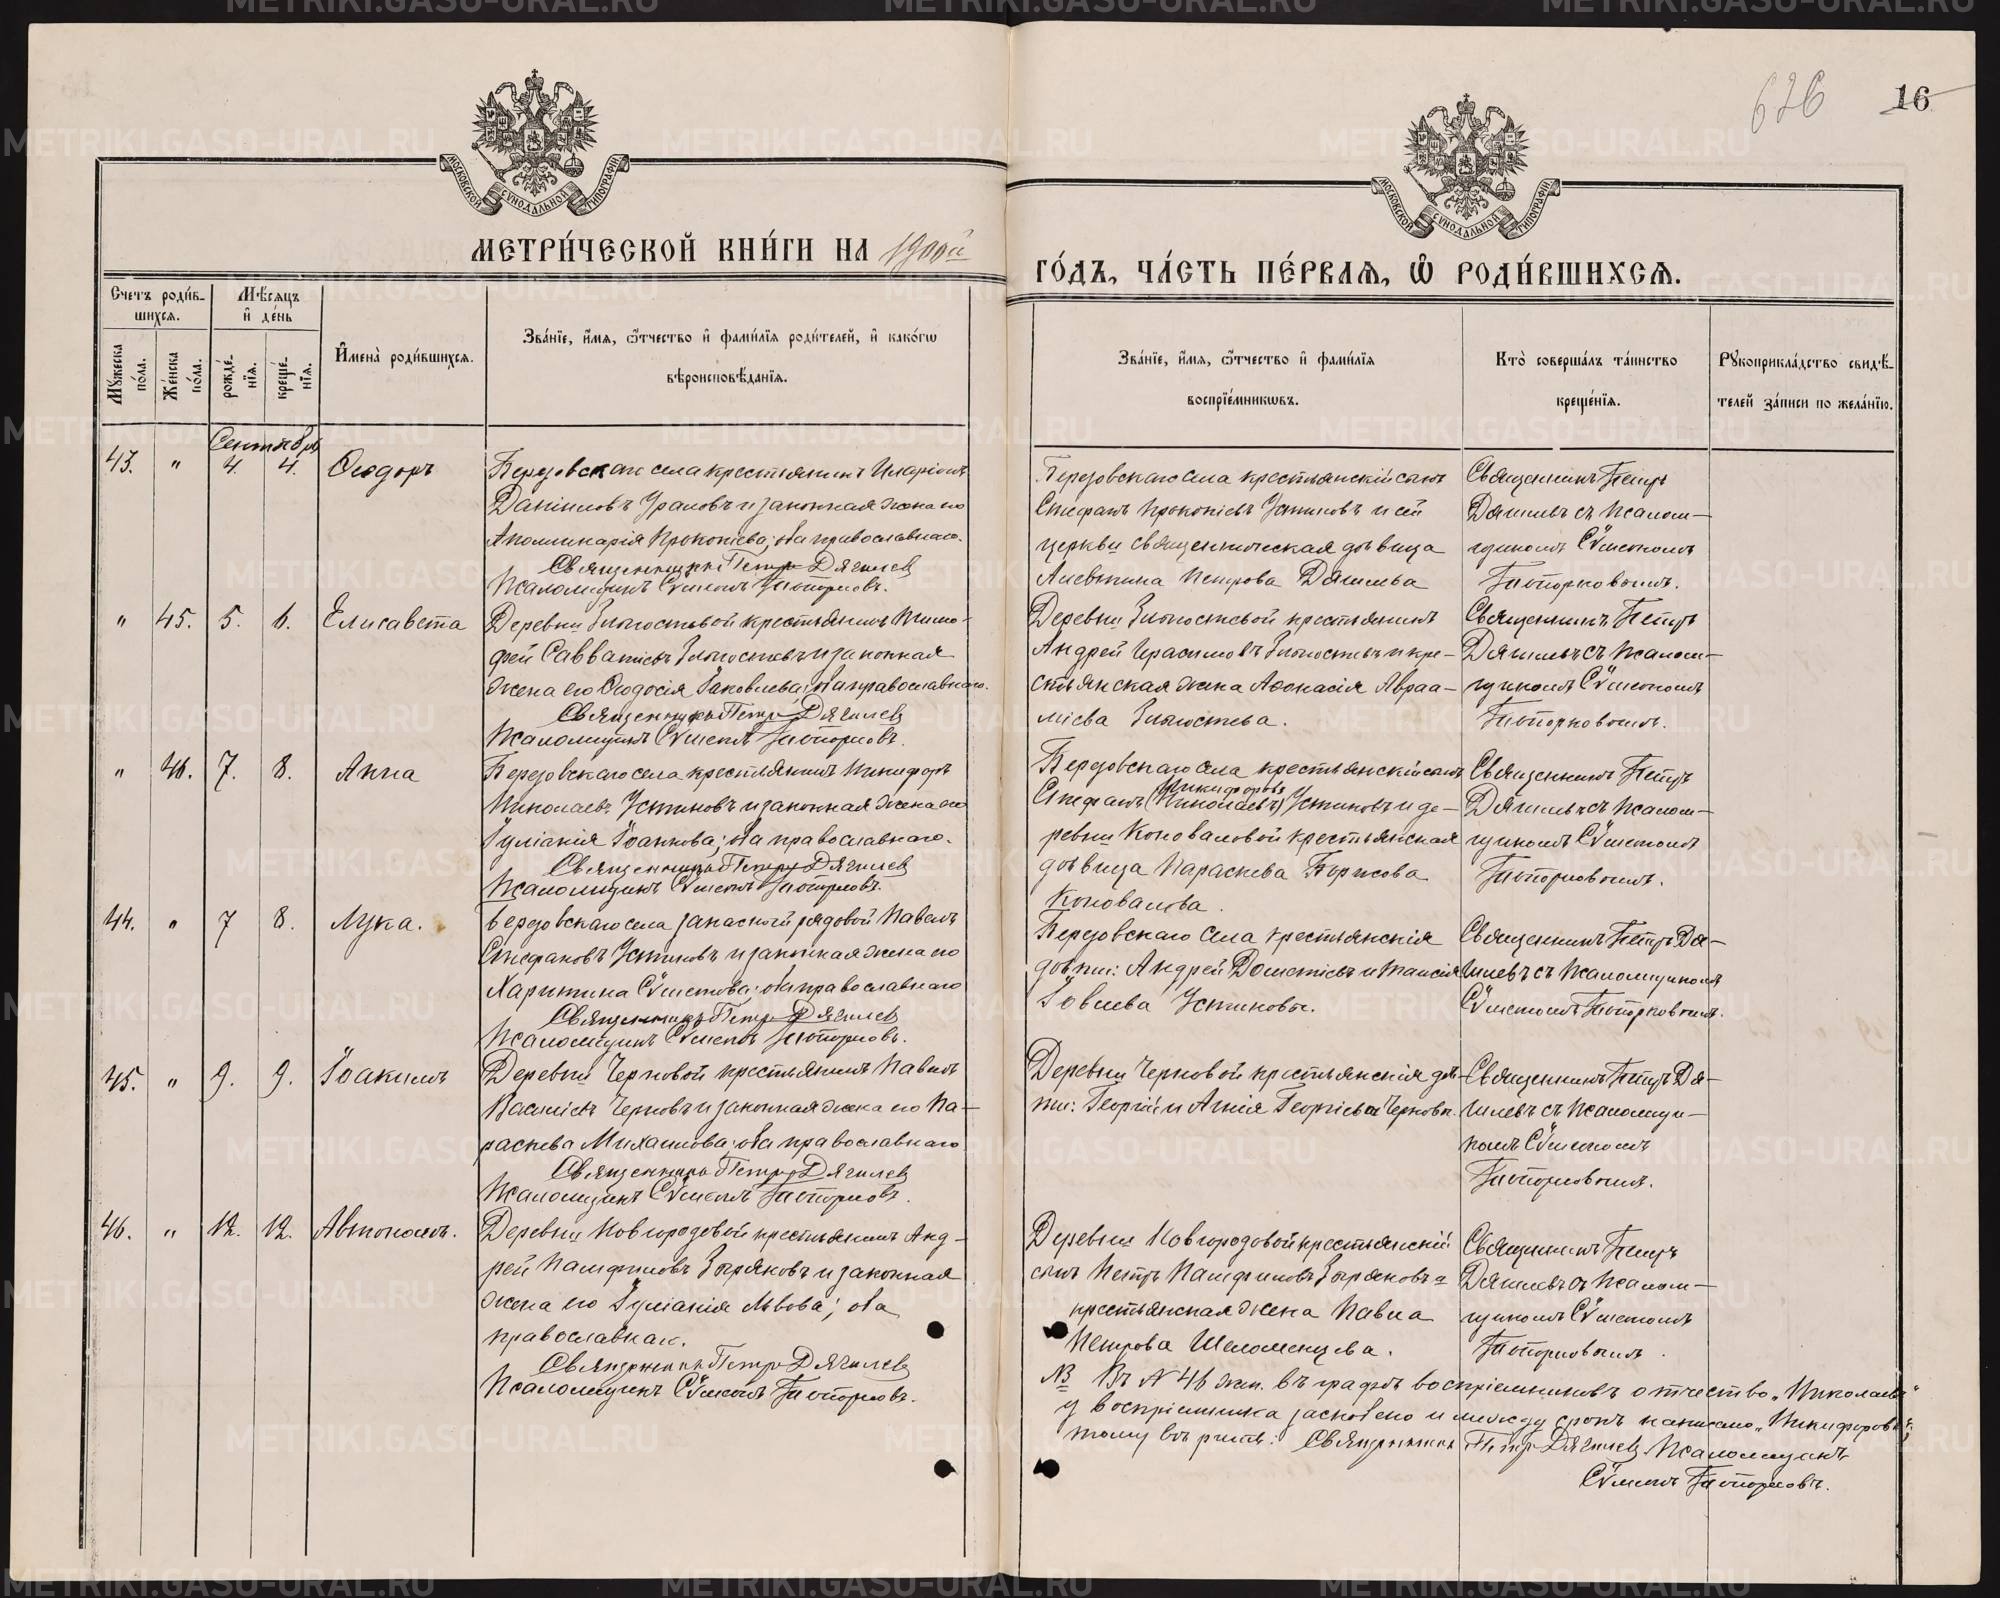 626
16
МОСКОВСКОЙ СѴНОДАЛЬНОЙ ТИПОГРАФІИ
МОСКОВСКОЙ СѴНОДАЛЬНОЙ ТИПОГРАФІИ
МЕТРИ́ЧЕСКОЙ КНИ́ГИ НА 1900й
ГО́ДЪ, ЧА́СТЬ ПЕ́РВАЯ, Ѽ РОДИ́ВШИХСЯ.
Счетъ роди́в-
шихся.
Мѣсяцъ
и҆ де́нь
Мꙋжеска по́ла.
Же́нска по́ла.
рожде́-нїя.
креще́-нїя.
И҆мена̀ роди́вшихся.
Зва́нїе, и҆́мя, ѻ҆́тчество и҆ фами́лїя роди́телей, и҆ како́гѡ
вѣроисповѣ́данїя.
Зва́нїе, и҆́мя, ѻ҆́тчество и҆ фами́лїя
воспрїе́мникѡвъ.
Кто̀ соверша́лъ та́инство
креще́нїя.
Рꙋкоприкла́дство свидѣ́-
телей за́писи по жела́нїю.
Сентябрь
43. " 4. 4. Ѳеодоръ
Березовскаго села крестьянинъ Иларіонъ
Даніиловъ Ураловъ и законная жена его
Аполлинарія Прокопіева; оба православнаго.
Священникъ Петръ Дягилевъ
Псаломщикъ Сѵмеонъ Топорковъ.
Березовскаго села крестьянскій сынъ
Стефанъ Прокопіевъ Устиновъ и сей
церкви священническая дѣвица
Алевтина Петрова Дягилева
Священникъ Петръ
Дягилевъ съ псалом-
щикомъ Сѵмеономъ
Топорковымъ.
" 45. 5. 6. Елисавета
Деревни Злогостевой крестьянинъ Тимо-
фей Савватіевъ Злогостевъ и законная
жена его Ѳеодосія Іаковлева; оба православнаго.
Священникъ Петръ Дягилевъ
Псаломщикъ Сѵмеонъ Топорковъ.
Деревни Злогостевой крестьянинъ
Андрей Герасимовъ Злогостевъ и кре-
стьянская жена Аѳанасія Авраа-
міева Злогостева.
Священникъ Петръ
Дягилевъ съ псалом-
щикомъ Сѵмеономъ
Топорковымъ.
" 46. 7. 8. Анна
Березовскаго села крестьянинъ Никифоръ
Николаевъ Устиновъ и законная жена его
Іуліанія Іоаннова; оба православнаго.
Священникъ Петръ Дягилевъ
Псаломщикъ Сѵмеонъ Топорковъ.
Березовскаго села крестьянскій сынъ
Никифоровъ
Стефанъ (Николаевъ) Устиновъ и де-
ревни Коноваловой крестьянская
дѣвица Параскева Борисова
Коновалова.
Священникъ Петръ
Дягилевъ съ псалом-
щикомъ Сѵмеономъ
Топорковымъ.
44. " 7 8. Лука.
Березовскаго села запасной рядовой Павелъ
Стефановъ Устиновъ и законная жена его
Харитина Сѵмеонова; оба православнаго
Священникъ Петръ Дягилевъ
Псаломщикъ Сѵмеонъ Топорковъ.
Березовскаго села крестьянскія
дѣти: Андрей Дометіевъ и Таисія
Іовлева Устиновы.
Священникъ Петръ Дя-
гилевъ съ псаломщикомъ
Сѵмеономъ Топорковымъ.
45. " 9. 9. Іоакимъ
Деревни Черновой крестьянинъ Павелъ
Василіевъ Черновъ и законная жена его Па-
раскева Михаилова; оба православнаго
Священникъ Петръ Дягилевъ
Псаломщикъ Сѵмеонъ Топорковъ.
Деревни Черновой крестьянскія дѣ-
ти: Георгій и Агнія Георгіевы Черновы.
Священникъ Петръ Дя-
гилевъ съ псаломщи-
комъ Сѵмеономъ
Топорковымъ.
46. " 12. 12. Автономъ.
Деревни Новгородовой крестьянинъ Анд-
рей Памфиловъ Зыряновъ и законная
жена его Іуліанія Львова; оба
православнаго.
Священникъ Петръ Дягилевъ
Псаломщикъ Сѵмеонъ Топорковъ.
Деревни Новгородовой крестьянскій
сынъ Петръ Памфиловъ Зыряновъ и
крестьянская жена Павла
Петрова Шеломенцева.
Священникъ Петръ
Дягилевъ съ псалом-
щикомъ Сѵмеономъ
Топорковымъ.
NB Въ № 46 жен. въ графѣ воспріемниковъ отчество „Николаевъ"
у воспріемника заскоблено и между строкъ написано „Никифоровъ";
тому вѣрить: Священникъ Петръ Дягилевъ Псаломщикъ
Сѵмеонъ Топорковъ.
METRIKI.GASO-URAL.RU